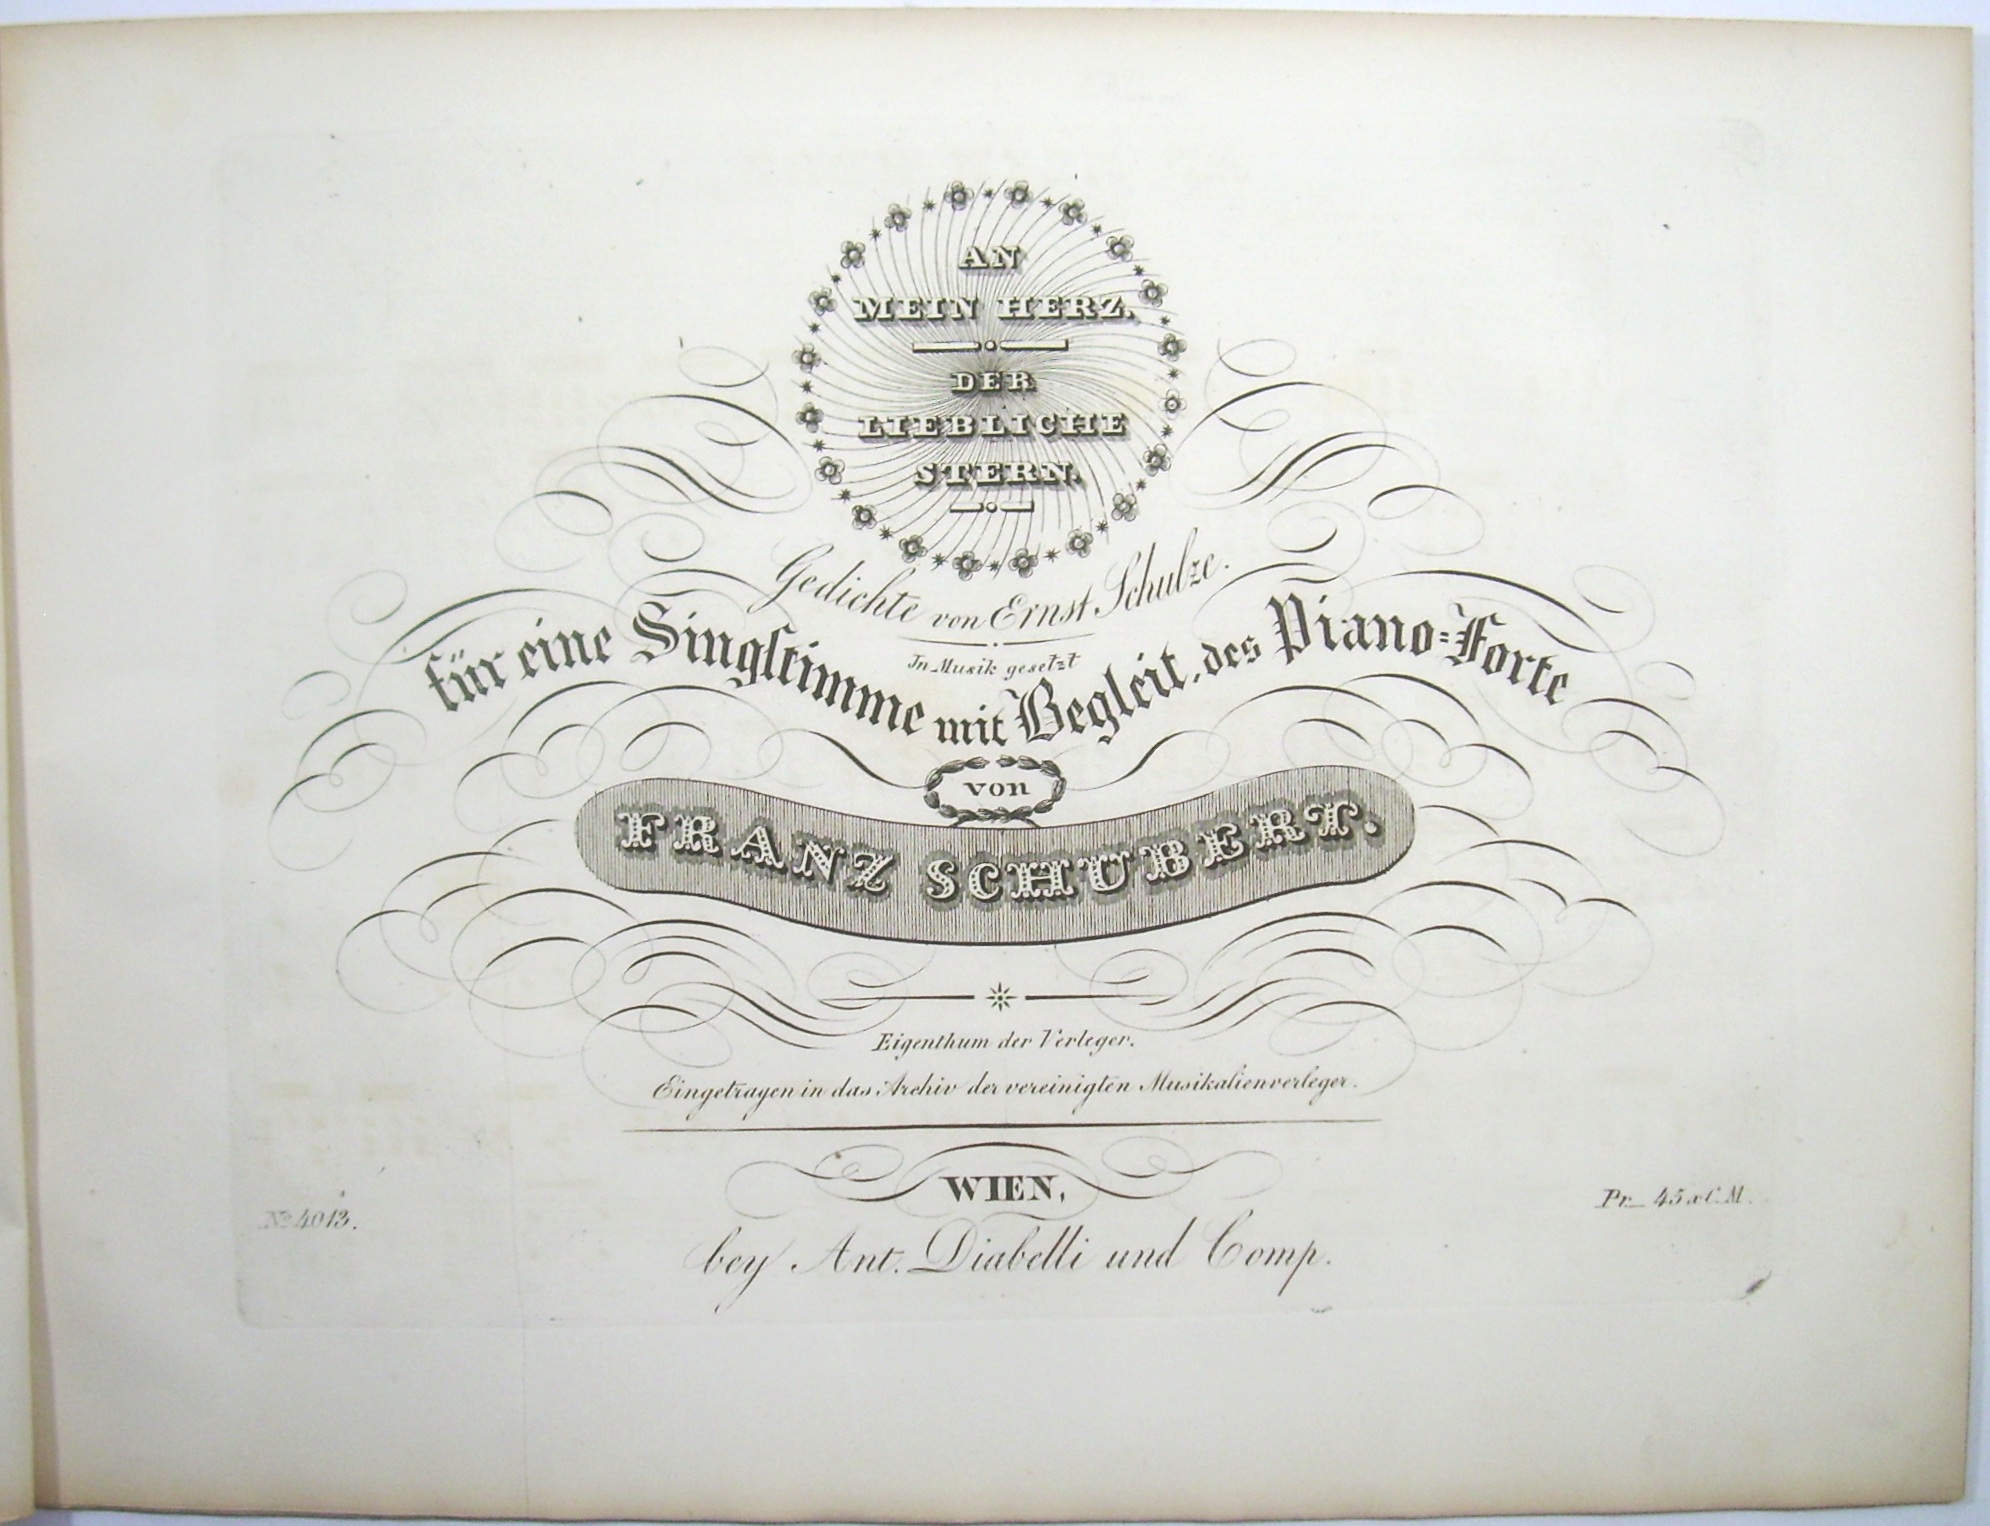 AN
MEIN HERZ.
DER
LIEBLICHE
STERN.
Gedichte von Ernst Schulze.
In Musik gesetzt
für eine Singstimme mit Begleit. des Piano=Forte
von
FRANZ SCHUBERT.
Eigenthum der Verleger.
Eingetragen in das Archiv der vereinigten Musikalienverleger.
WIEN,
No 4013.
Pr_ 45 x C.M.
bey Ant. Diabelli und Comp.